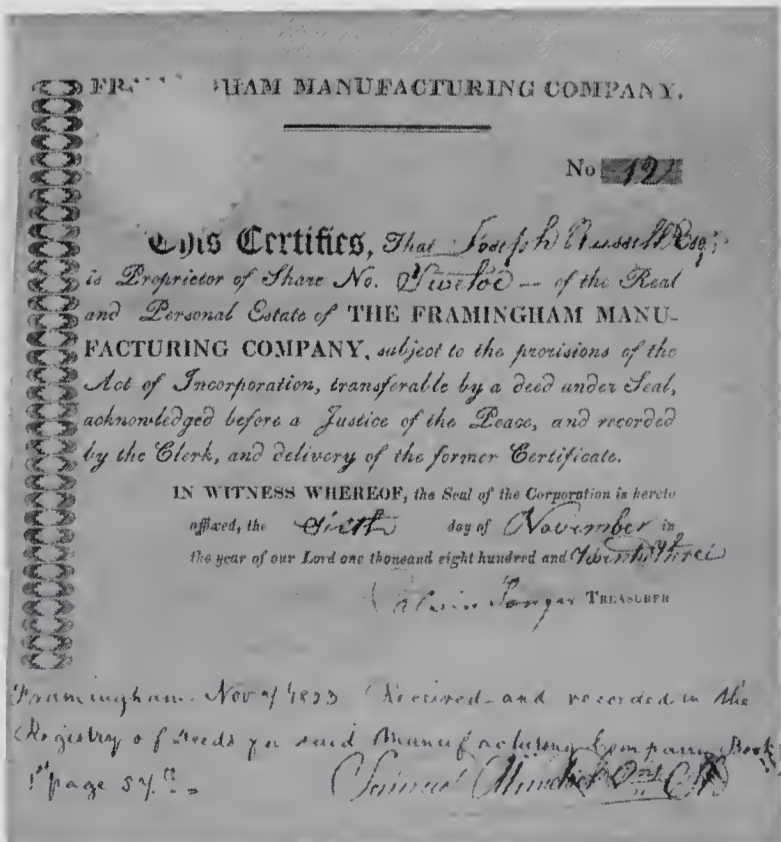 FRAMINGHAM MANUFACTURING COMPANY.
No 12
This Certifies, That Joseph Russell Esqr
is Proprietor of Share No. Twelve — of the Real
and Personal Estate of THE FRAMINGHAM MANU-
FACTURING COMPANY, subject to the provisions of the
Act of Incorporation, transferable by a deed under Seal,
acknowledged before a Justice of the Peace, and recorded
by the Clerk, and delivery of the former Certificate.
IN WITNESS WHEREOF, the Seal of the Corporation is hereto
affixed, the Sixth day of November in
the year of our Lord one thousand eight hundred and Twenty three
TREASURER
Framingham Nov 1823 Received and recorded in the
Registry of Deeds said Manufacturing Company Book
1st page 57.
Samuel